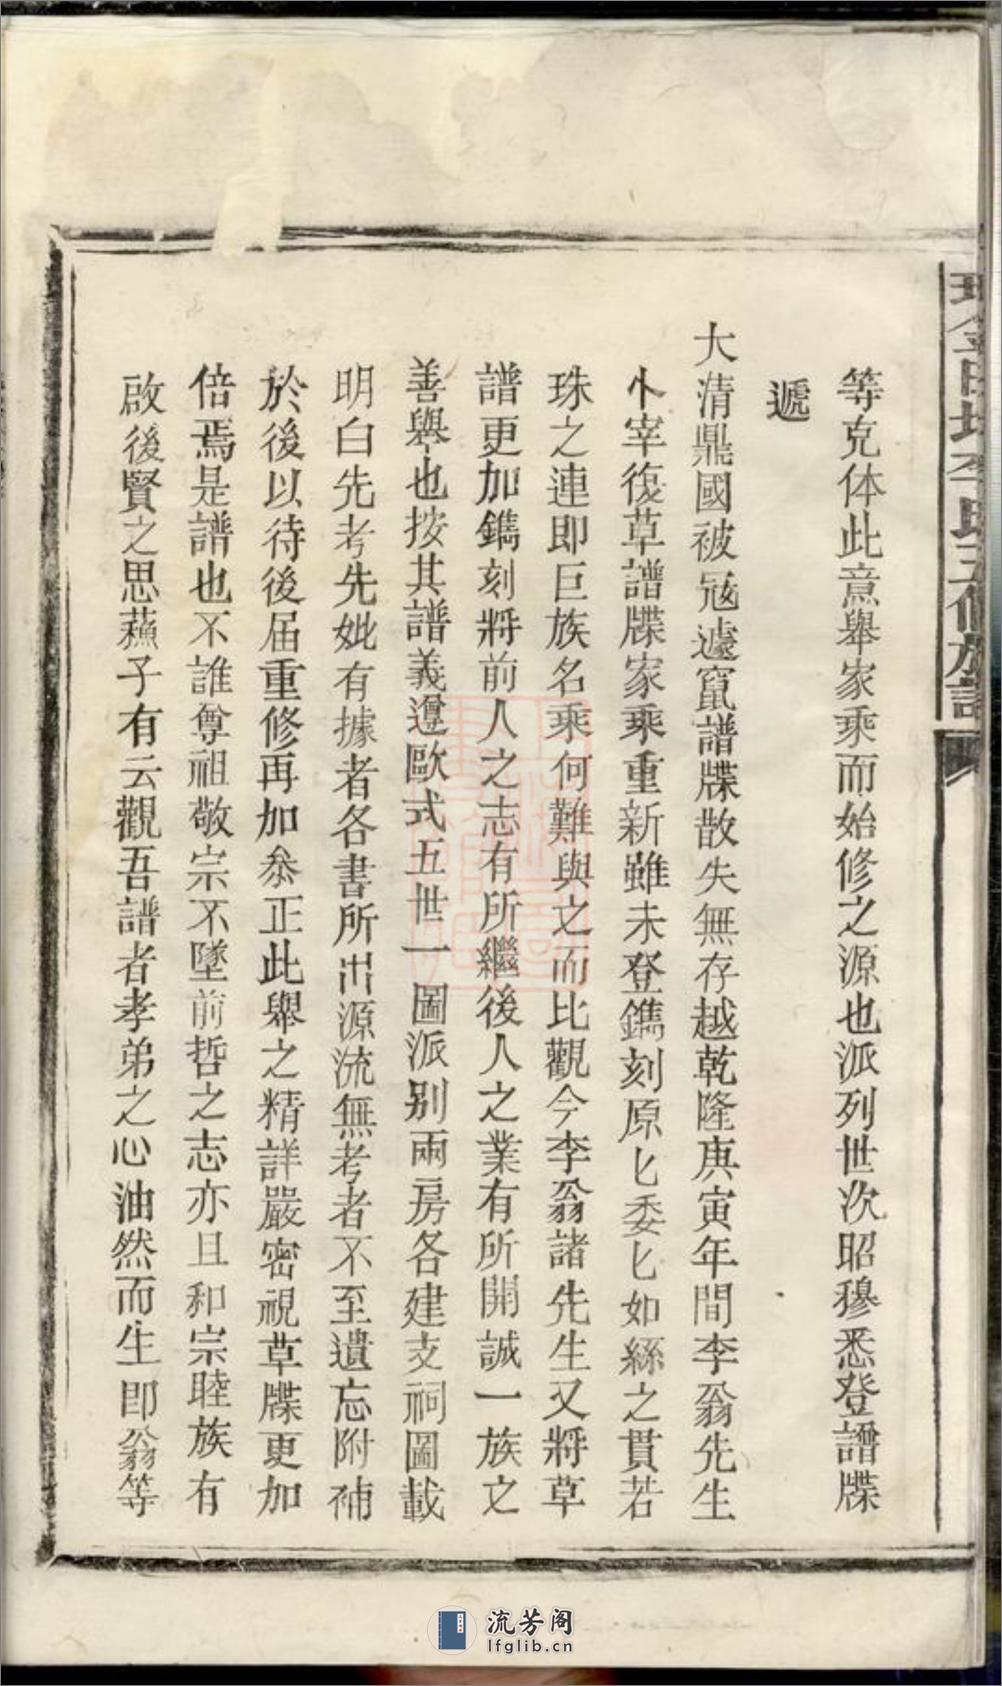 等克体此意舉家乘而始修之源也派列世次昭穆悉登譜牒
遞
大清鼎國被冦遽竄譜牒散失無存越乾隆庚寅年間李翁先生
卜宰復草譜牒家乘重新雖未登鐫刻原匕委匕如絲之貫若
珠之連即巨族名乘何難與之而比觀今李翁諸先生又將草
譜更加鐫刻將前人之志有所繼後人之業有所開誠一族之
善舉也按其譜義遵歐式五世一圖派别兩房各建支祠圖載
明白先考先妣有據者各書所出源流無考者不至遺忘附補
於後以待後届重修再加叅正此舉之精詳嚴密視草牒更加
倍焉是譜也不誰尊祖敬宗不墜前哲之志亦且和宗睦族有
啟後賢之思蘓子有云觀吾譜者孝弟之心油然而生即翁等
李氏五修族譜
流芳阁
lfglib.cn